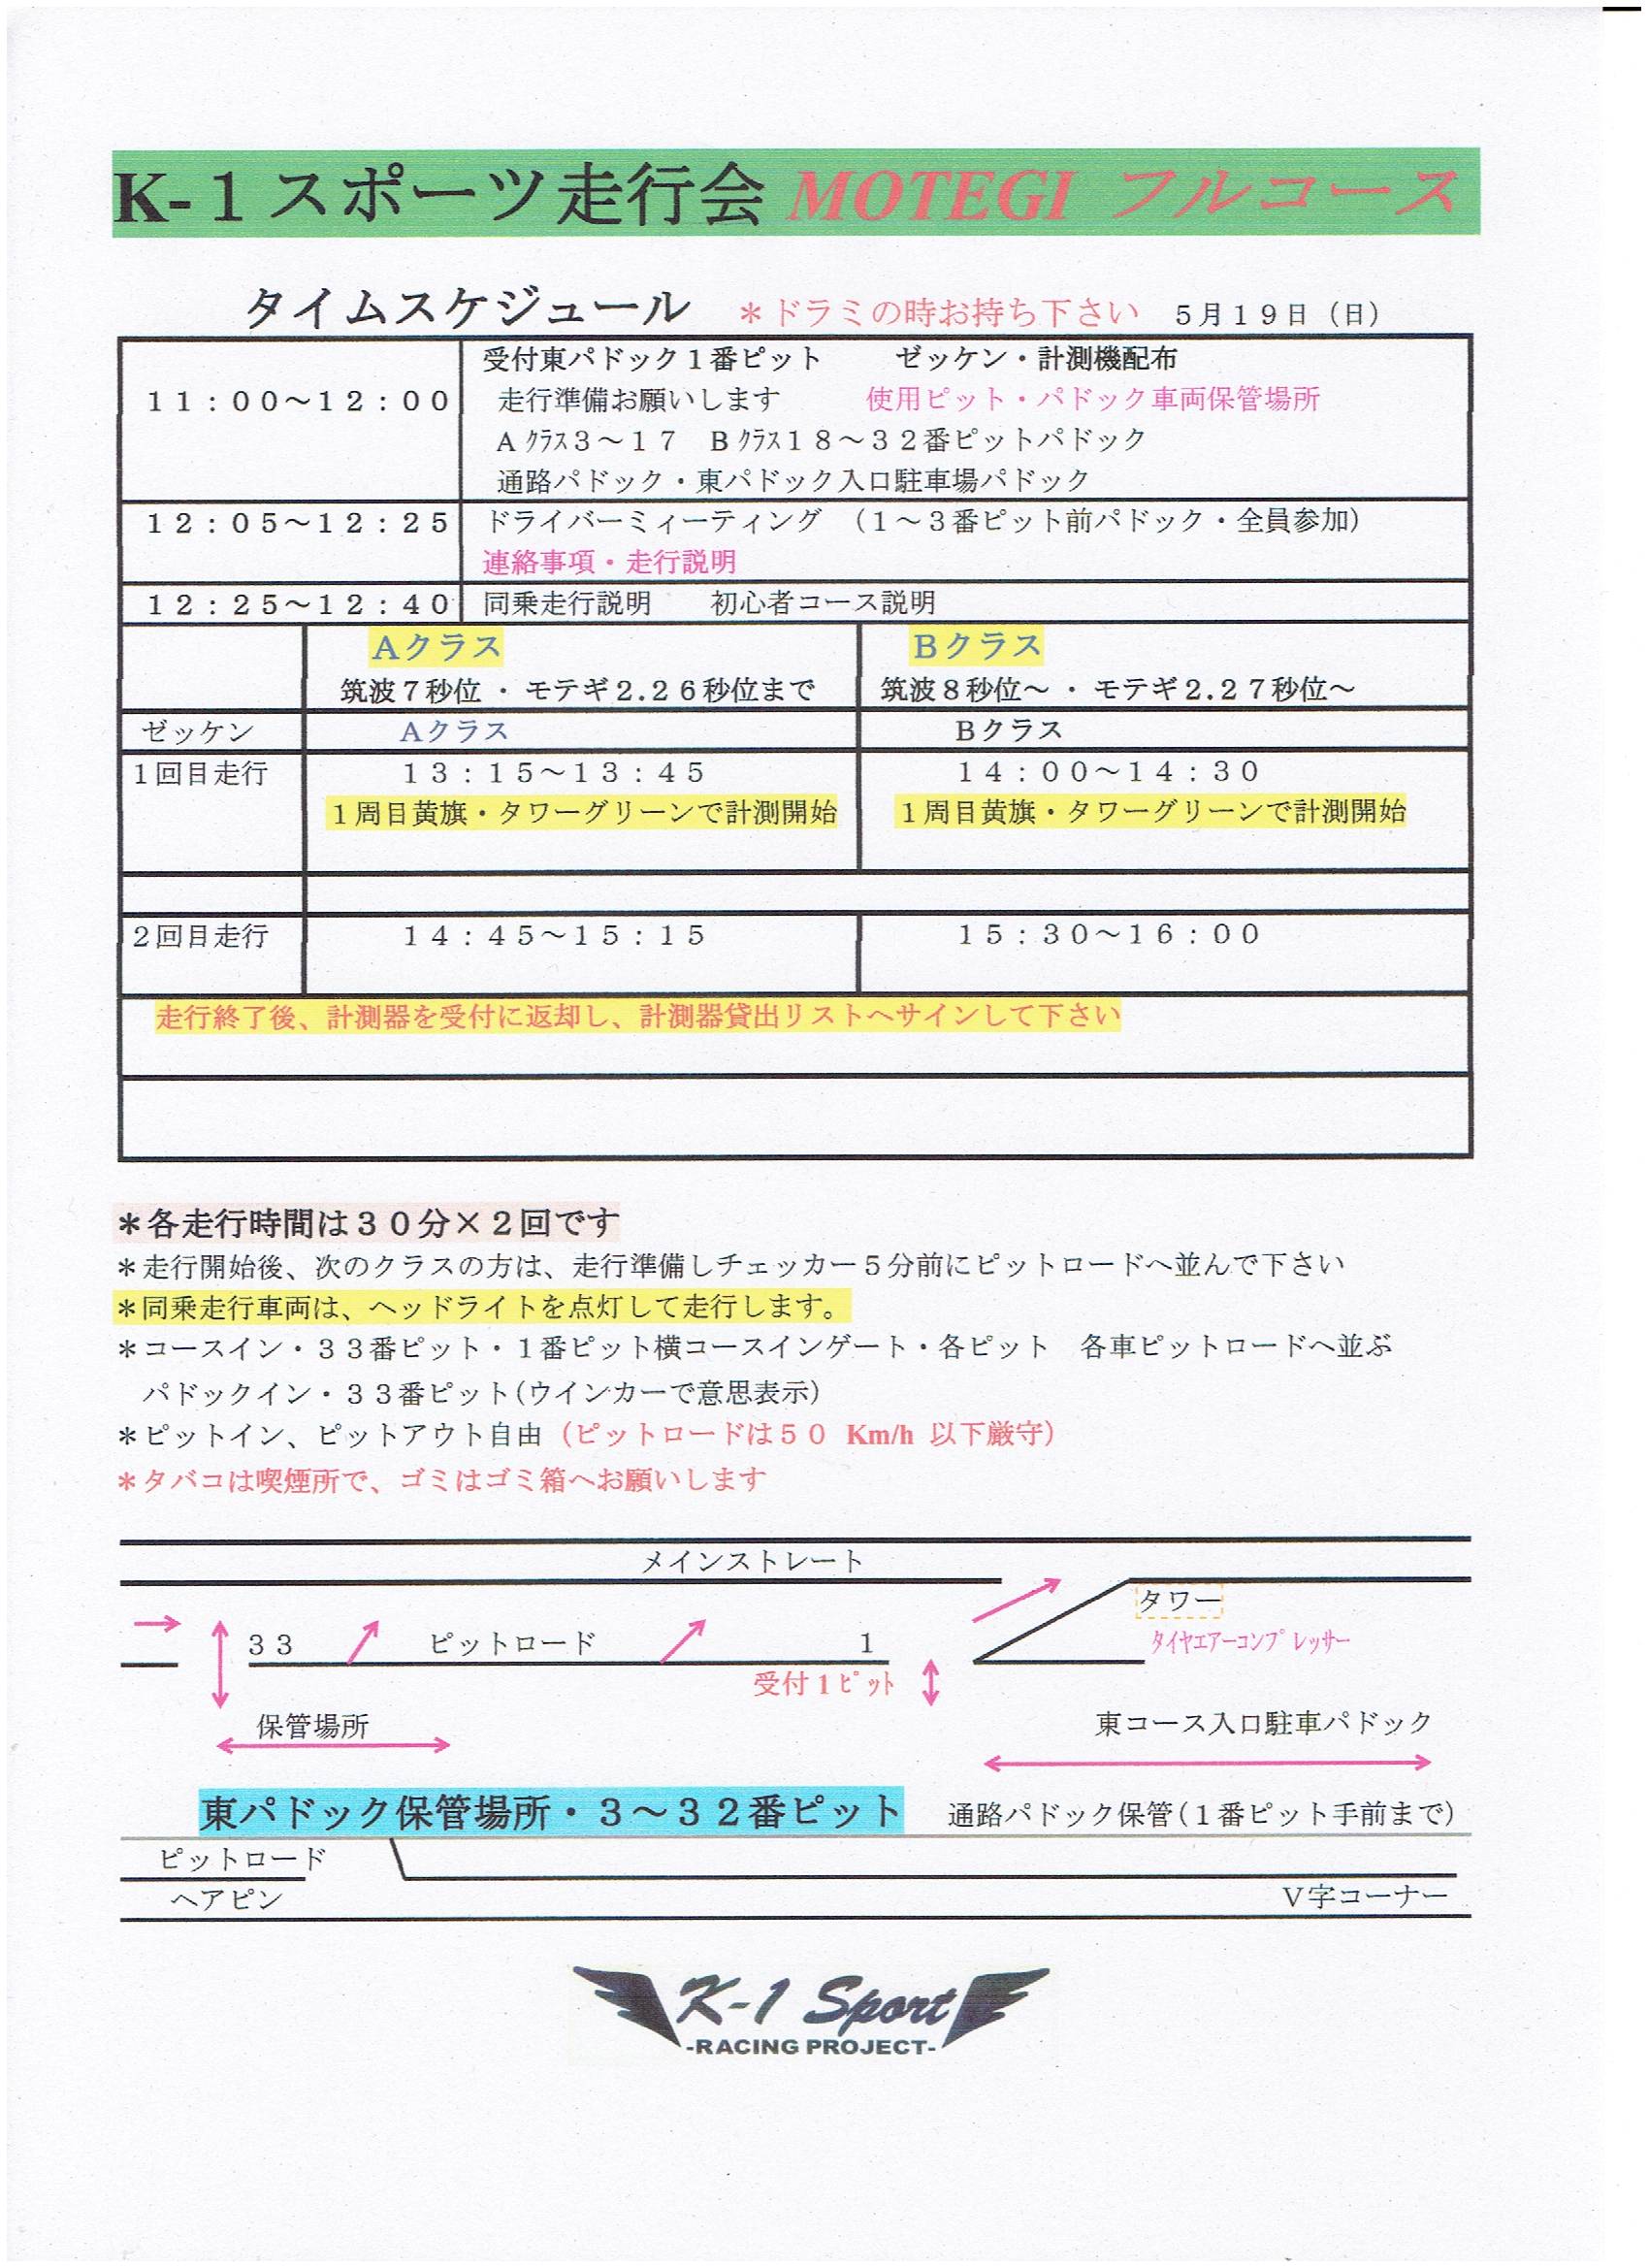 K-１スポーツ走行会 MOTEGI フルコース
タイムスケジュール ＊ドラミの時お持ち下さい ５月１９日（日）
受付東パドック１番ピット ゼッケン・計測機配布
１１：００～１２：００ 走行準備お願いします 使用ピット・パドック車両保管場所
A ｸﾗｽ３～１７ B ｸﾗｽ１８～３２番ピットパドック
通路パドック・東パドック入口駐車場パドック
１２：０５～１２：２５ ドライバーミィーティング （１～３番ピット前パドック・全員参加）
連絡事項・走行説明
１２：２５～１２：４０ 同乗走行説明 初心者コース説明
Aクラス Bクラス
筑波７秒位 ・ モテギ２.２６秒位まで 筑波８秒位～ ・ モテギ２.２７秒位～
ゼッケン Aクラス Bクラス
１回目走行 １３：１５～１３：４５ １４：００～１４：３０
１周目黄旗・タワーグリーンで計測開始 １周目黄旗・タワーグリーンで計測開始
２回目走行 １４：４５～１５：１５ １５：３０～１６：００
走行終了後、計測器を受付に返却し、計測器貸出リストへサインして下さい
＊各走行時間は３０分×２回です
＊走行開始後、次のクラスの方は、走行準備しチェッカー５分前にピットロードへ並んで下さい
＊同乗走行車両は、ヘッドライトを点灯して走行します。
＊コースイン・３３番ピット・１番ピット横コースインゲート・各ピット 各車ピットロードへ並ぶ
パドックイン・３３番ピット(ウインカーで意思表示)
＊ピットイン、ピットアウト自由（ピットロードは５０ Km/h 以下厳守）
＊タバコは喫煙所で、ゴミはゴミ箱へお願いします
メインストレート
タワー
３３ ピットロード １ ﾀｲﾔエアーコンプﾟレッサー
受付１ﾋﾟｯﾄ
保管場所 東コース入口駐車パドック
東パドック保管場所・３～３２番ピット 通路パドック保管(１番ピット手前まで)
ピットロード
ヘアピン V字コーナー
K-1 Sport
-RACING PROJECT-